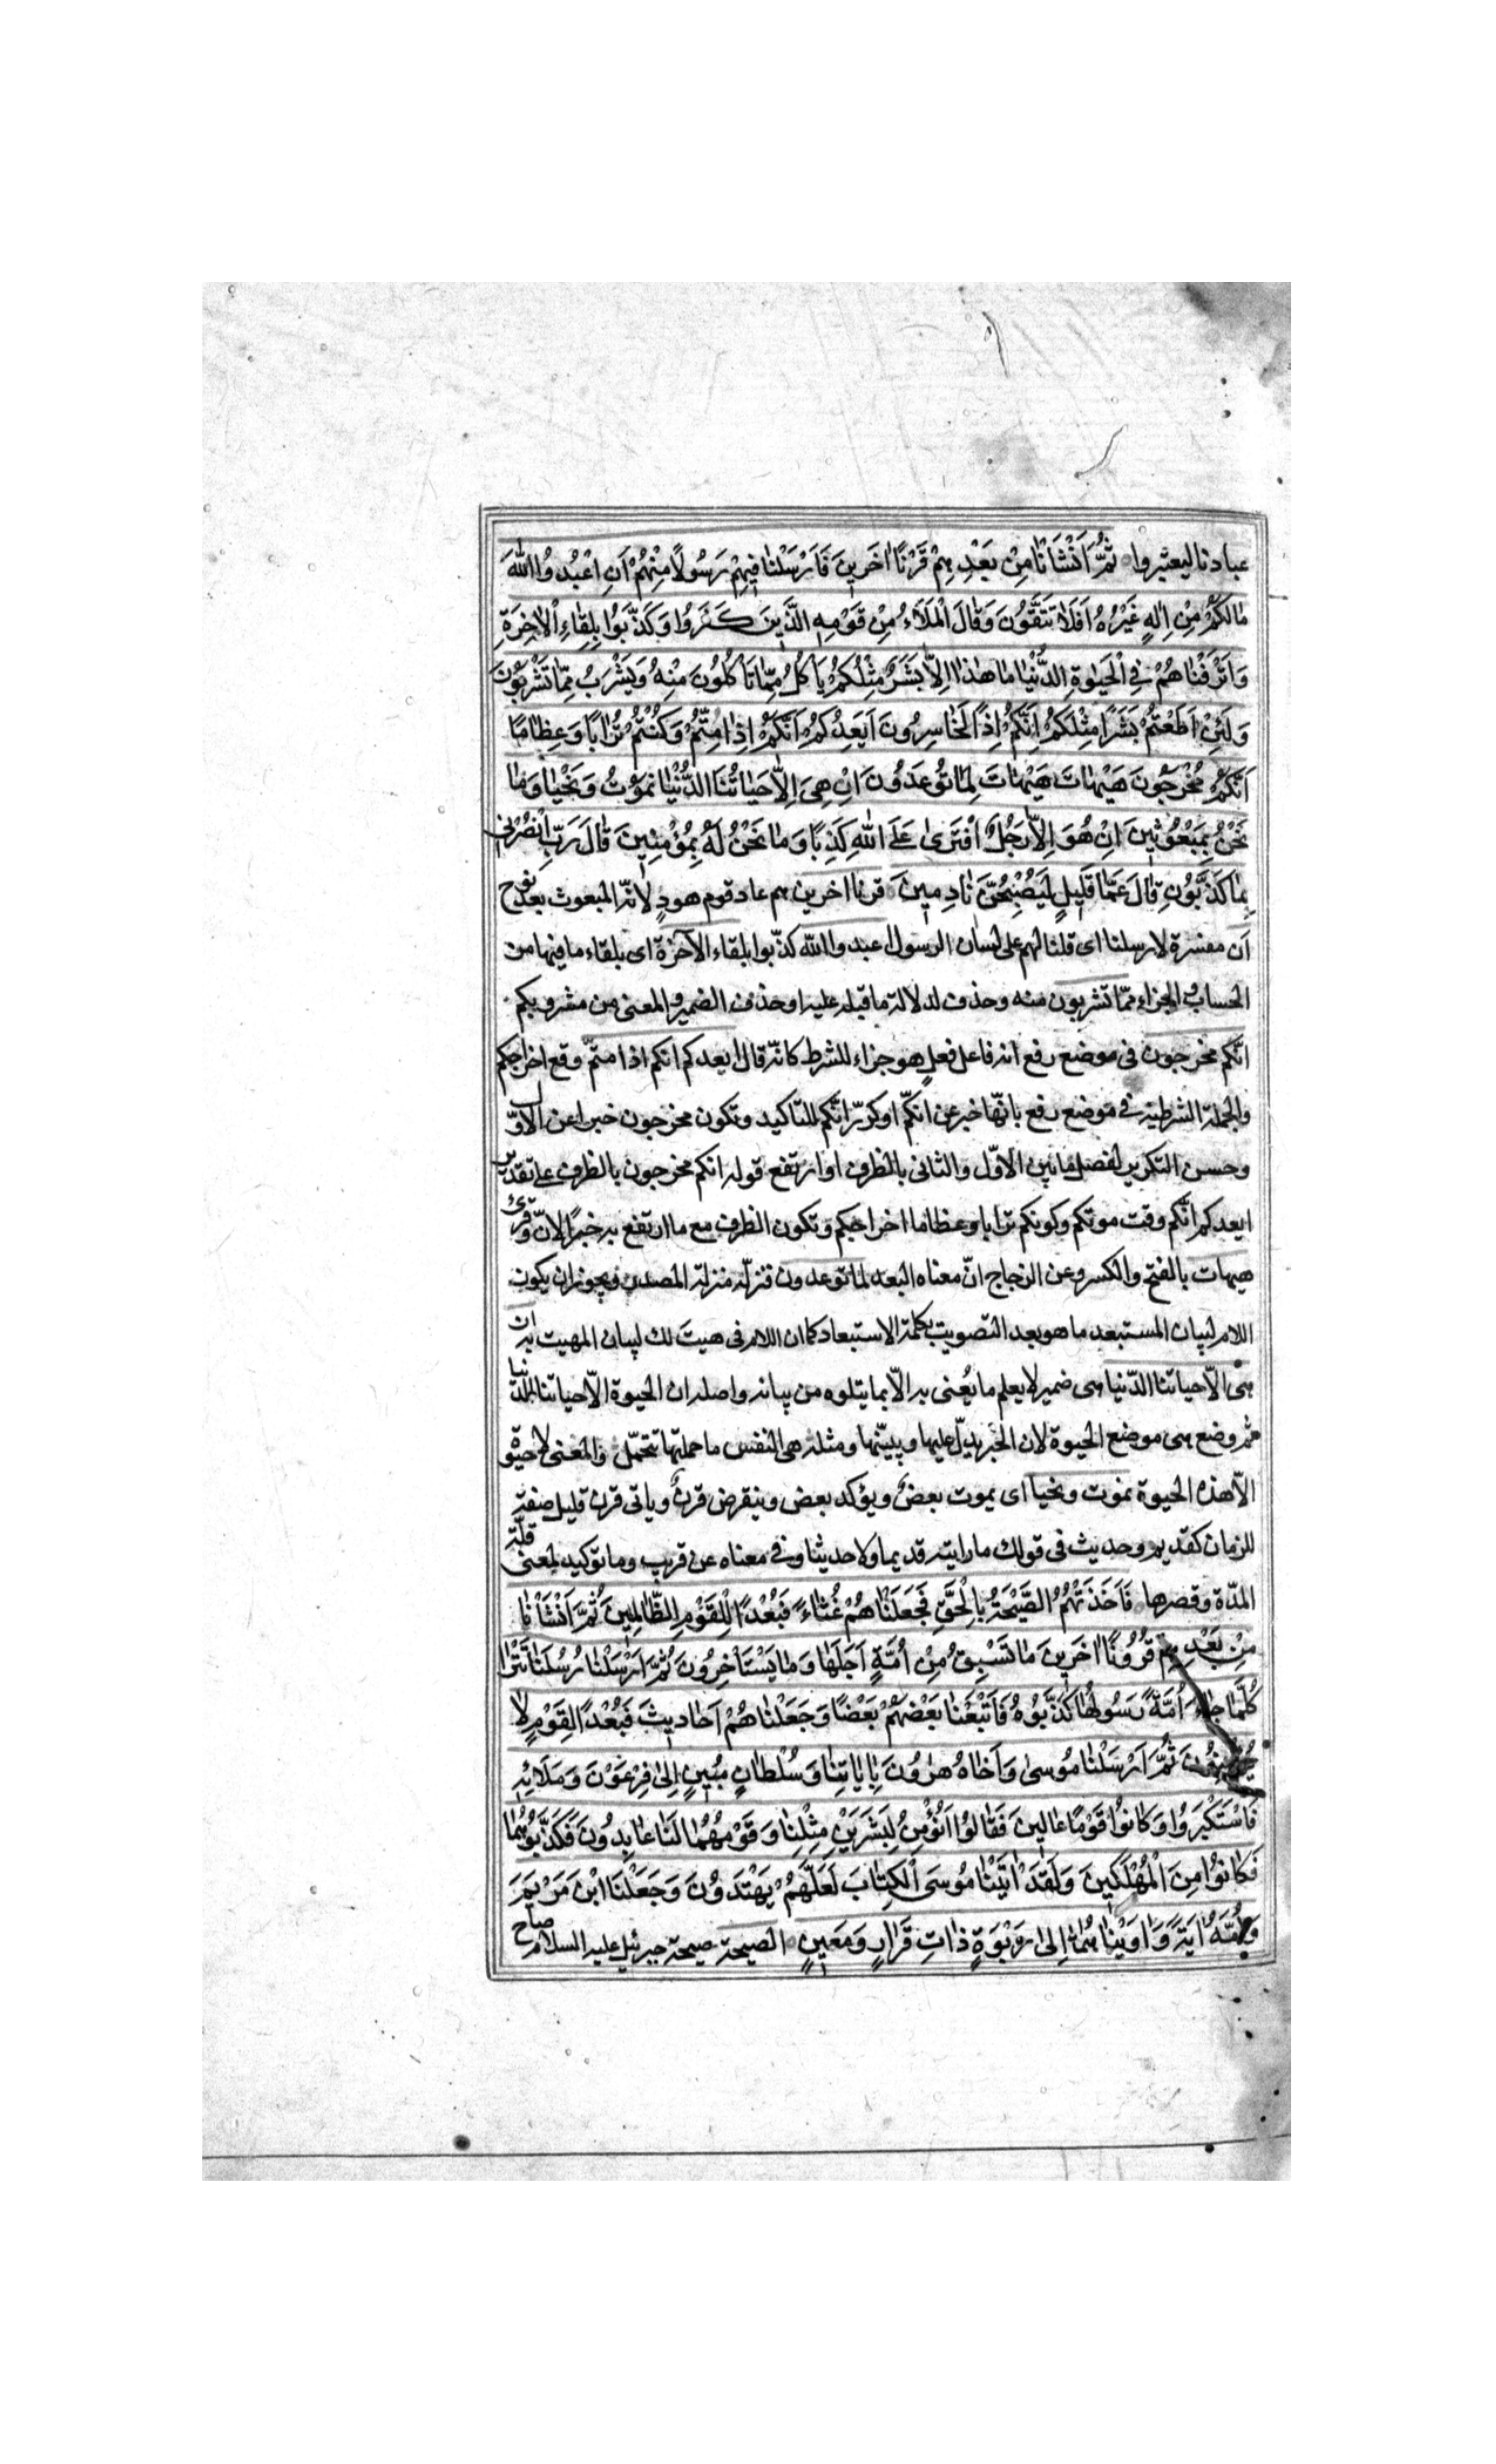 عبادنا ليعتبروا ثُمَّ اَنْشَاْنٰا مِنْ بَعْدِهِمْ قَرْنًا اٰخَرينَ فَاَرْسَلْنٰا فيهِمْ رَسُولًا مِنْهُمْ اَنِ اعْبُدُوا اللّٰهَ
مٰا لَكُمْ مِنْ اِلٰهٍ غَيْرُهُ اَفَلٰا تَتَّقُونَ وَقٰالَ الْمَلَاءُ مِنْ قَوْمِهِ الَّذينَ كَفَرُوا وَكَذَّبُوا بِلِقٰاءِ الْاٰخِرَةِ
وَاَتْرَفْنٰاهُمْ فِي الْحَيٰوةِ الدُّنْيٰا مٰا هٰذٰا اِلّٰا بَشَرٌ مِثْلُكُمْ يَاْكُلُ مِمّٰا تَاْكُلُونَ مِنْهُ وَيَشْرَبُ مِمّٰا تَشْرَبُونَ
وَلَئِنْ اَطَعْتُمْ بَشَرًا مِثْلَكُمْ اِنَّكُمْ اِذًا لَخٰاسِرُونَ اَيَعِدُكُمْ اَنَّكُمْ اِذٰا مِتُّمْ وَكُنْتُمْ تُرٰابًا وَعِظٰامًا
اَنَّكُمْ مُخْرَجُونَ هَيْهٰاتَ هَيْهٰاتَ لِمٰا تُوعَدُونَ اِنْ هِيَ اِلّٰا حَيٰاتُنَا الدُّنْيٰا نَمُوْتُ وَنَحْيٰا وَمٰا
نَحْنُ بِمَبْعُوثينَ اِنْ هُوَ اِلّٰا رَجُلٌ افْتَرىٰ عَلَى اللّٰهِ كَذِبًا وَمٰا نَحْنُ لَهُ بِمُؤْمِنينَ قٰالَ رَبِّ انْصُرْني
بِمٰا كَذَّبُونِ قٰالَ عَمّٰا قَليلٍ لَيُصْبِحُنَّ نٰادِمينَ قرنا اخرين هم عاد قوم هودٍ لانّه المبعوث بعد نوح
اَن مفسّرة لارسلنا اى قلنا لهم على لسان الرسول اعبدوا اللّٰه كذّبوا بلقاء الآخرة اى بلقاء ما فيها من
الحساب والجزاء ممّا تشربون منه وحذف لدلالة ما قبله عليه او حذف الضمير والمعنى من مشروبكم
انّكم مخرجون فى موضع رفع انه فاعل فعلٍ هو جزاء للشرط كانّه قال ايعدكم انكم اذا متمّ وقع اخراجكم
والجملة الشرطيّة في موضع رفع بانّها خبر عن انّكم او كرّر انّكم للتاكيد وتكون مخرجون خبرا عن الاوّل
وحسن التكرير لفصل ما بين الاوّل والثانى بالظرف او ارتفع قوله انكم مخرجون بالظرف على تقدير
ايعدكم انّكم وقت موتكم وكونكم ترابا وعظاما اخراجكم وتكون الظرف مع ما ارتفع به خبرًا لانّ وقرئ
هيهات بالفتح والكسر وعن الزجاج انّ معناه البعد لما توعدون فنزّله منزلة المصدر ويجوز ان يكون
اللام لبيان المستبعد ما هو بعد التصويت بكلمة الاستبعاد كما ان اللام فى هيتَ لك لبيان المهيت به ان
هى الّا حياتنا الدّنيا هى ضمير لا يعلم ما يُعنى به الّا بما يتلوه من بيانه واصله ان الحيوة الّا حياتنا الدّنيا
ثم وضع هى موضع الحيوة لان الخبر يدلّ عليها ويبيّنها ومثله هى النفس ما حملتها تتحمّل والمعنى لا حيوة
الّا هذه الحيوة نموت ونحيا اى يموت بعضٌ ويؤكد بعض وينقرض قرنٌ وياتى قرن قليل صفة
للزمان كقديم وحديث فى قولك ما رايته قديما ولا حديثا وفي معناه عن قريب وما توكيد لمعنى قلّة
المدّة وقصرها فَاَخَذَتْهُمُ الصَّيْحَةُ بِالْحَقِّ فَجَعَلْنٰاهُمْ غُثٰاءً فَبُعْدًا لِلْقَوْمِ الظّٰالِمينَ ثُمَّ اَنْشَاْنٰا
مِنْ بَعْدِهِمْ قُرُونًا اٰخَرينَ مٰا تَسْبِقُ مِنْ اُمَّةٍ اَجَلَهٰا وَمٰا يَسْتَاْخِرُونَ ثُمَّ اَرْسَلْنٰا رُسُلَنٰا تَتْرٰا
كُلَّمٰا جٰاءَ اُمَّةً رَسُولُهٰا كَذَّبُوهُ فَاَتْبَعْنٰا بَعْضَهُمْ بَعْضًا وَجَعَلْنٰاهُمْ اَحٰاديثَ فَبُعْدًا لِقَوْمٍ لٰا
يُؤْمِنُونَ ثُمَّ اَرْسَلْنٰا مُوسىٰ وَاَخٰاهُ هٰرُونَ بِاٰيٰاتِنٰا وَسُلْطٰانٍ مُبينٍ اِلىٰ فِرْعَوْنَ وَمَلَائِهِ
فَاسْتَكْبَرُوا وَكٰانُوا قَوْمًا عٰالينَ فَقٰالُوا اَنُؤْمِنُ لِبَشَرَيْنِ مِثْلِنٰا وَقَوْمُهُمٰا لَنٰا عٰابِدُونَ فَكَذَّبُوهُمٰا
فَكٰانُوا مِنَ الْمُهْلَكينَ وَلَقَدْ اٰتَيْنٰا مُوسَى الْكِتٰابَ لَعَلَّهُمْ يَهْتَدُونَ وَجَعَلْنَا ابْنَ مَرْيَمَ
وَاُمَّهُ اٰيَةً وَاٰوَيْنٰاهُمٰا اِلىٰ رَبْوَةٍ ذٰاتِ قَرٰارٍ وَمَعينٍ الصيحة صيحة جبرئيل عليه السلام صاح